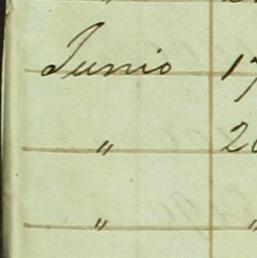 Junio 17
" 2
" "